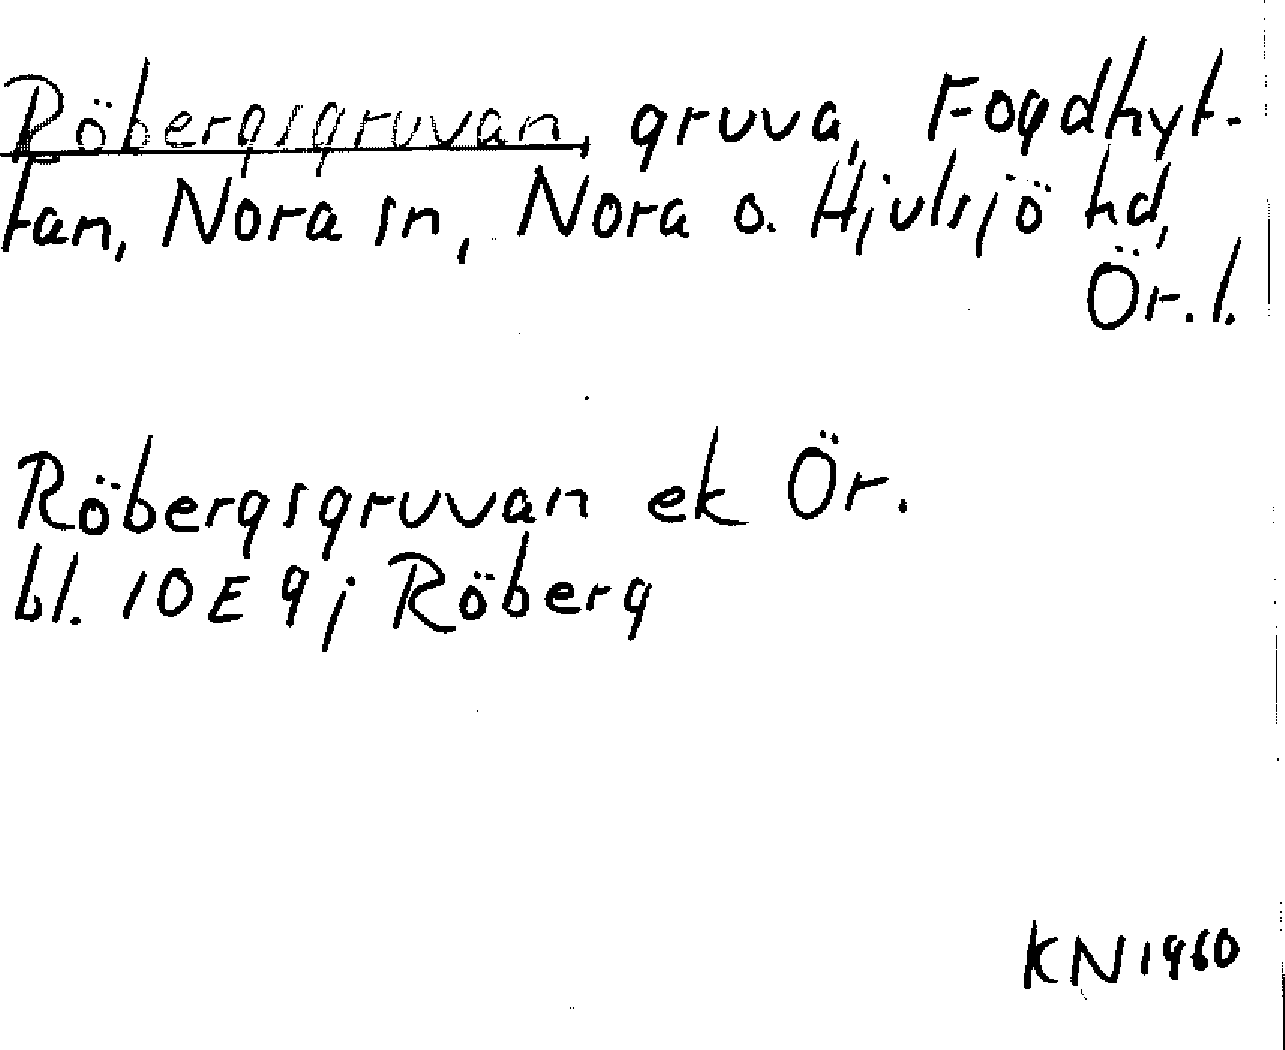 Röbergsgruvan, gruva, Fogdhyt-
tan, Nora sn, Nora o. Hjulsjö hd,
Ör. l.
Röbergsgruvan ek Ör.
bl. 10E 9j Röberg
KN 1960